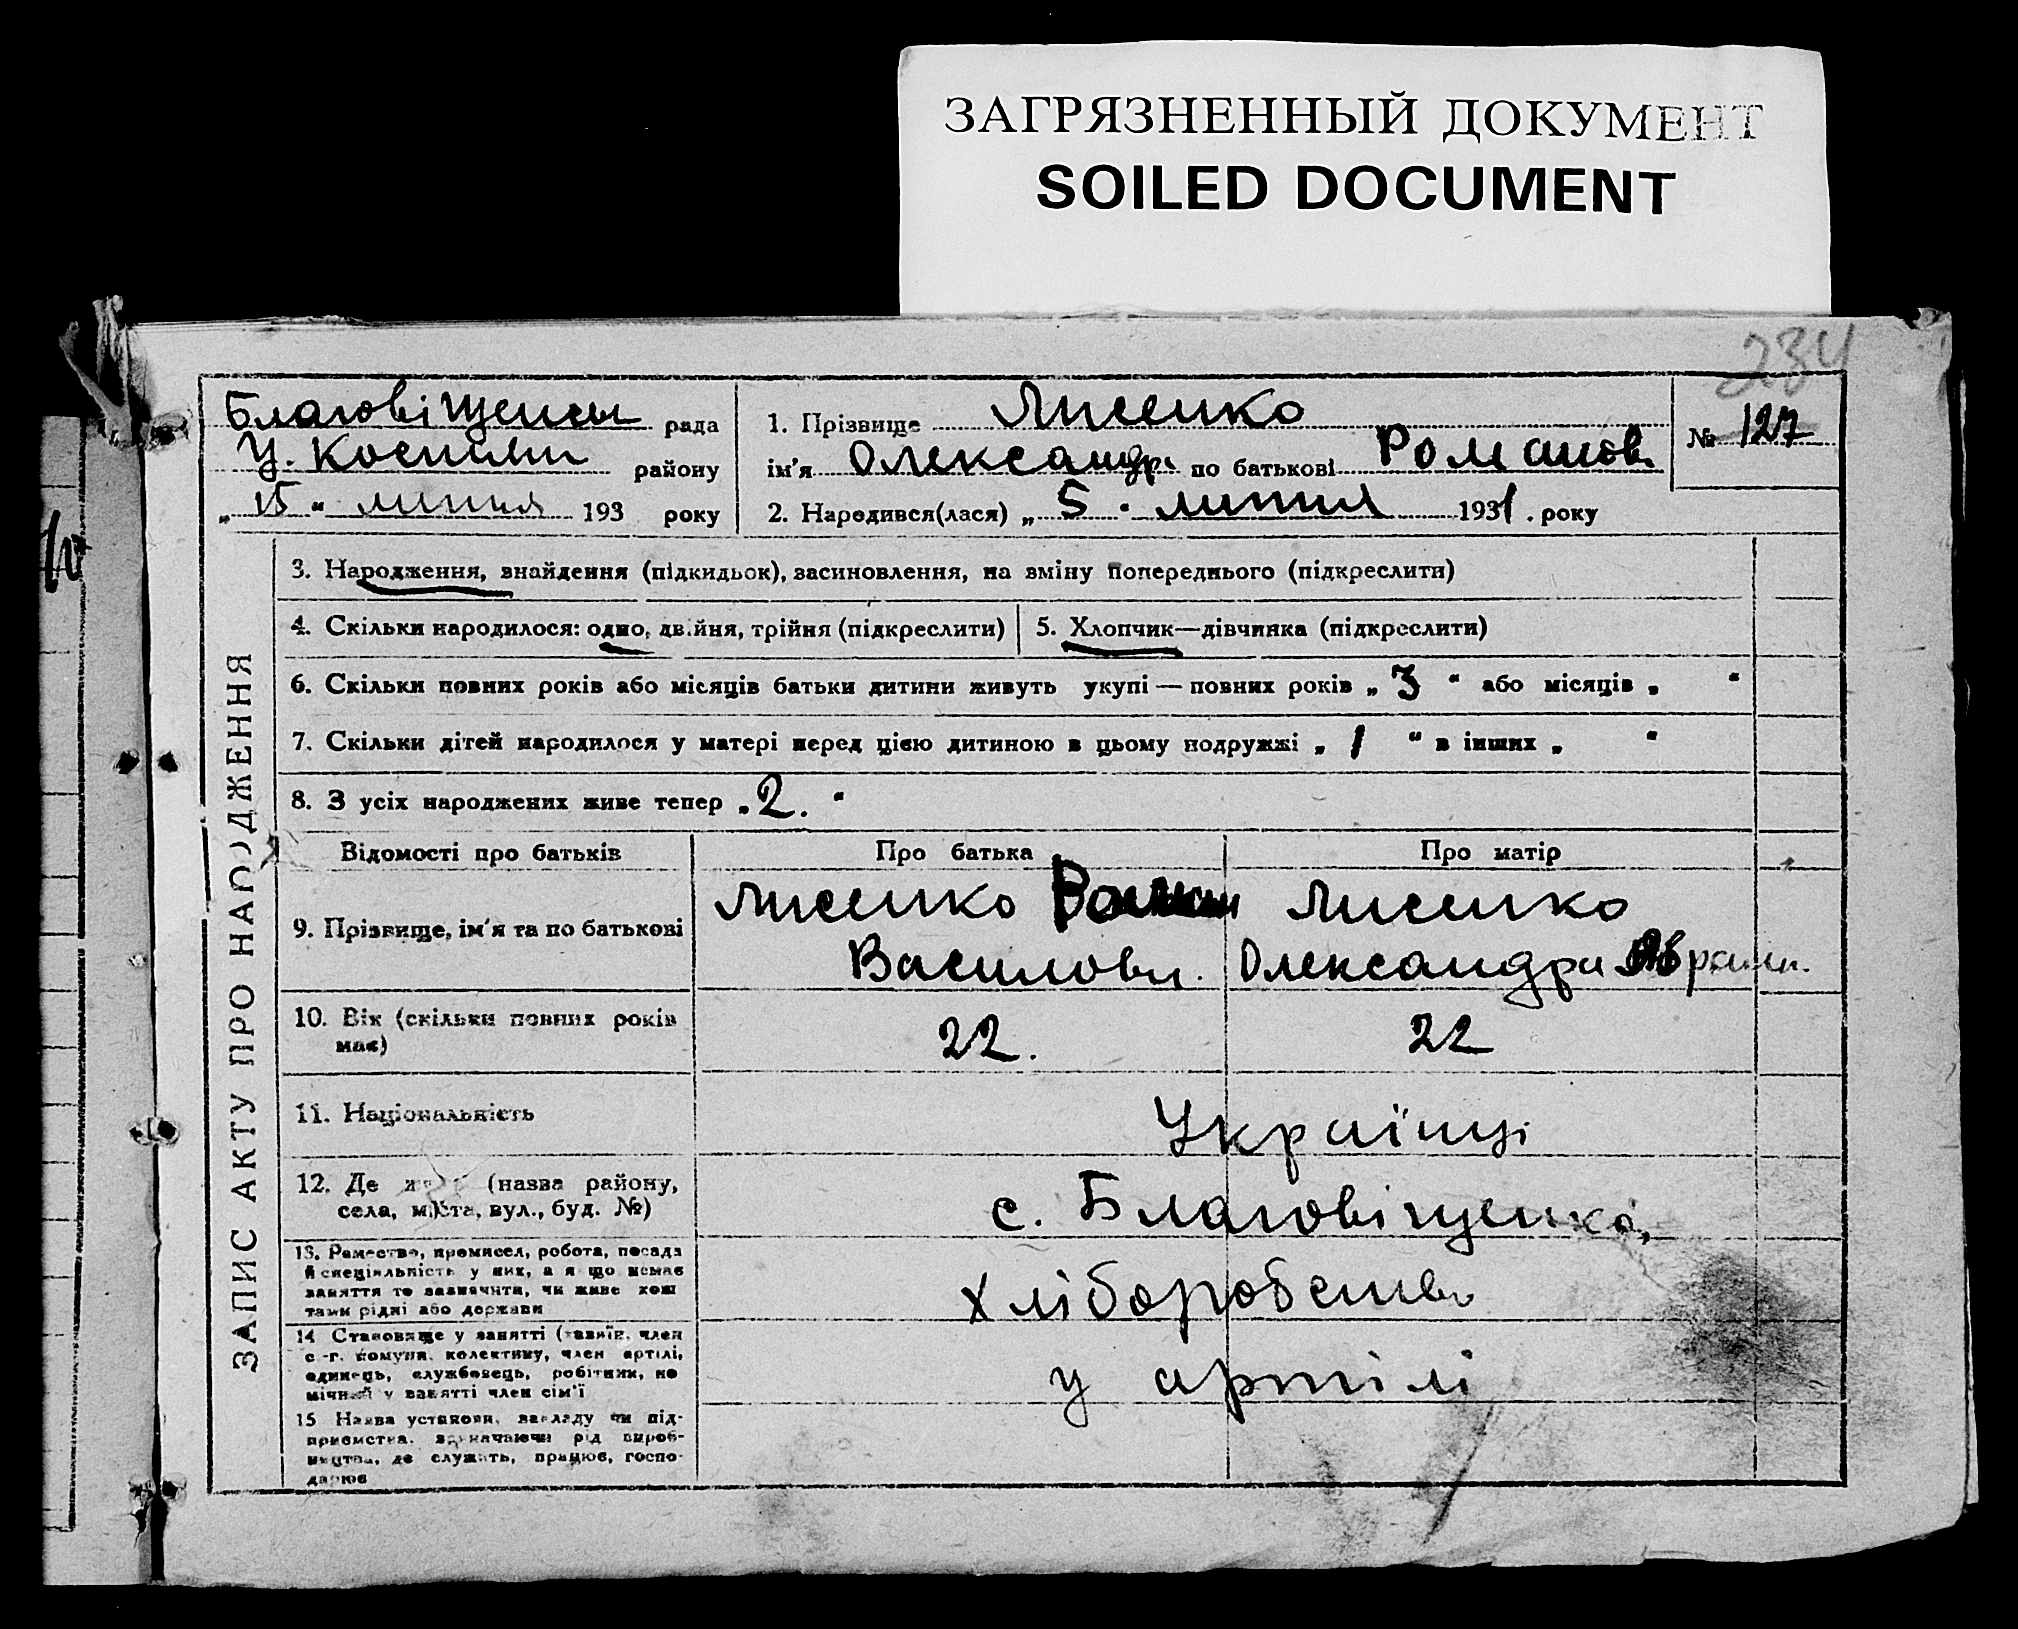 ЗАГРЯЗНЕННЫЙ ДОКУМЕНТ
SOILED DOCUMENT
234
Благовіщенсь рада
району
„ 15 “ липня 193 року
1. Прізвище Лисенко
ім'я Олександр по батькові Романов
2. Народився(лася) „ 5 . липня 1931 . року
№ 127
ЗАПИС АКТУ ПРО НАРОДЖЕННЯ
3. Народження, знайдення (підкидьок), засиновлення, на зміну попереднього (підкреслити)
4. Скільки народилося: одно, двійня, трійня (підкреслити)
5. Хлопчик—дівчинка (підкреслити)
6. Скільки повних років або місяців батьки дитини живуть укупі — повних років „ 3 “ або місяців „ “
7. Скільки дітей народилося у матері перед цією дитиною в цьому подружжі „ 1 “ в інших „ “
8. З усіх народжених живе тепер „ 2. “
Відомості про батьків
Про батька
Про матір
9. Прізвище, ім'я та по батькові
Лисенко Роман
Василови.
Лисенко
Олександра
10. Вік (скільки повних років
має)
22.
22
11. Національність
Українці
12. Де живе (назва району,
села, міста, вул., буд. №)
с. Благовіщенка,
13. Ремество, промисел, робота, посада
й спеціяльність у них, а як що немає
заняття то зазначити, чи живе кош
тами рідні або держави
хлібороб
14. Становище у занятті (хазяїн, член
с.-г. комуни, колективу, член артілі,
одинець, службовець, робітник, по
мічний у занятті член сім'ї
у артілі
15 Назва установи, закладу чи під-
приємства, зазначаючи рід вироб-
ництва, де служить, працює, госпо-
дарює